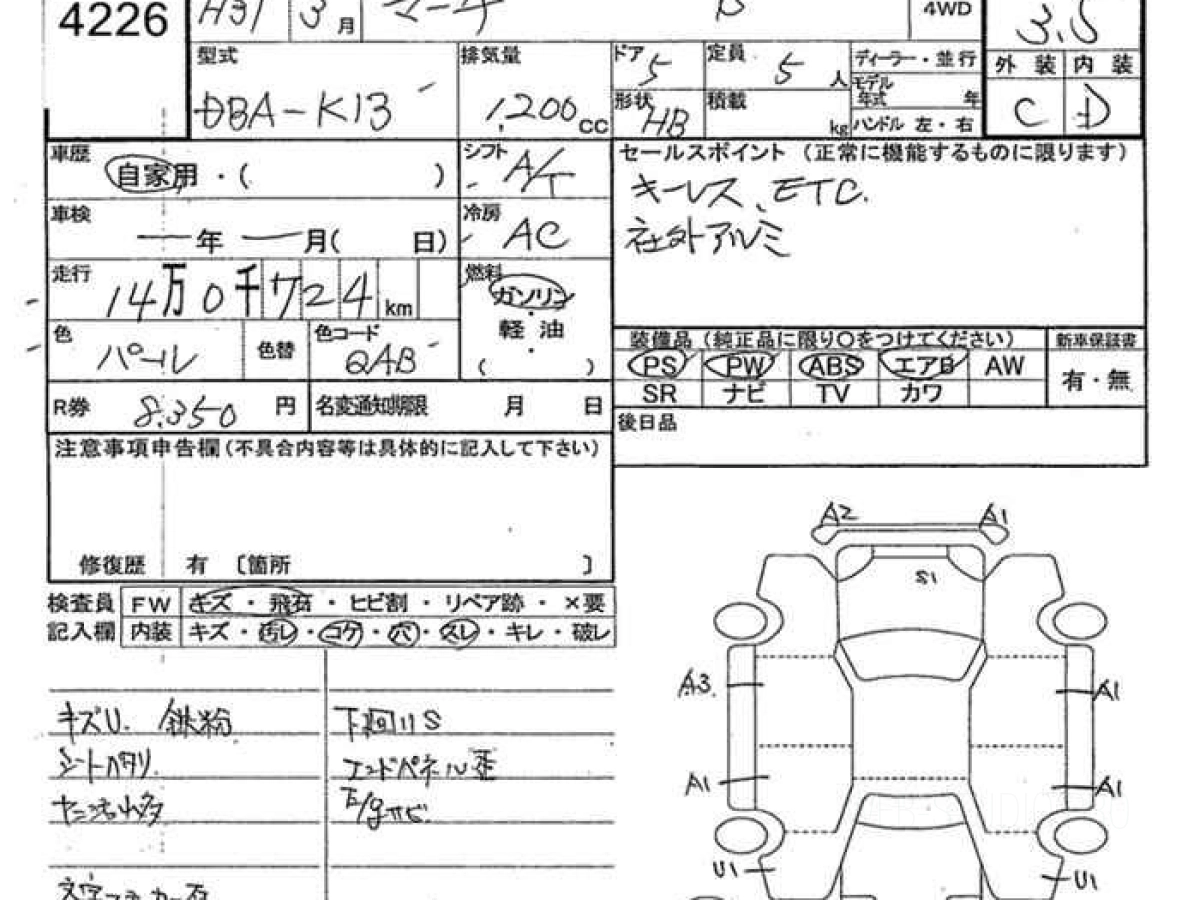 4226
H31 3月 マーチ 4WD 3.5
型式 排気量 ドア 5 定員 5人 ディーラー・並行 外装 内装
DBA-K13 1,200cc 形状 HB 積載 kg モデル年式 年 C D
ハンドル 左・右
車歴 自家用・( ) シフト A/T セールスポイント (正常に機能するものに限ります)
キーレス、ETC.
車検 ー年 ー月( 日) 冷房 AC 社外アルミ
走行 14万0千724km 燃料 ガソリン
軽油
( )
色 パール 色替 色コード QAB 装備品 (純正品に限り〇をつけてください) 新車保証書
PS PW ABS エアB AW 有・無
SR ナビ TV カワ
R券 8.350 円 名変通知期限 月 日 後日品
注意事項申告欄(不具合内容等は具体的に記入して下さい)
修復歴 有 〔箇所 〕
検査員 FW キズ・飛石・ヒビ割・リペア跡・×要
記入欄 内装 キズ・汚レ・コゲ・穴・スレ・キレ・破レ
A2 A1
S1
A3 A1
A1 A1
U1 U1
キズU. 鉄粉 下回りS
シートヘタリ. エンドパネル歪
E/gサビ